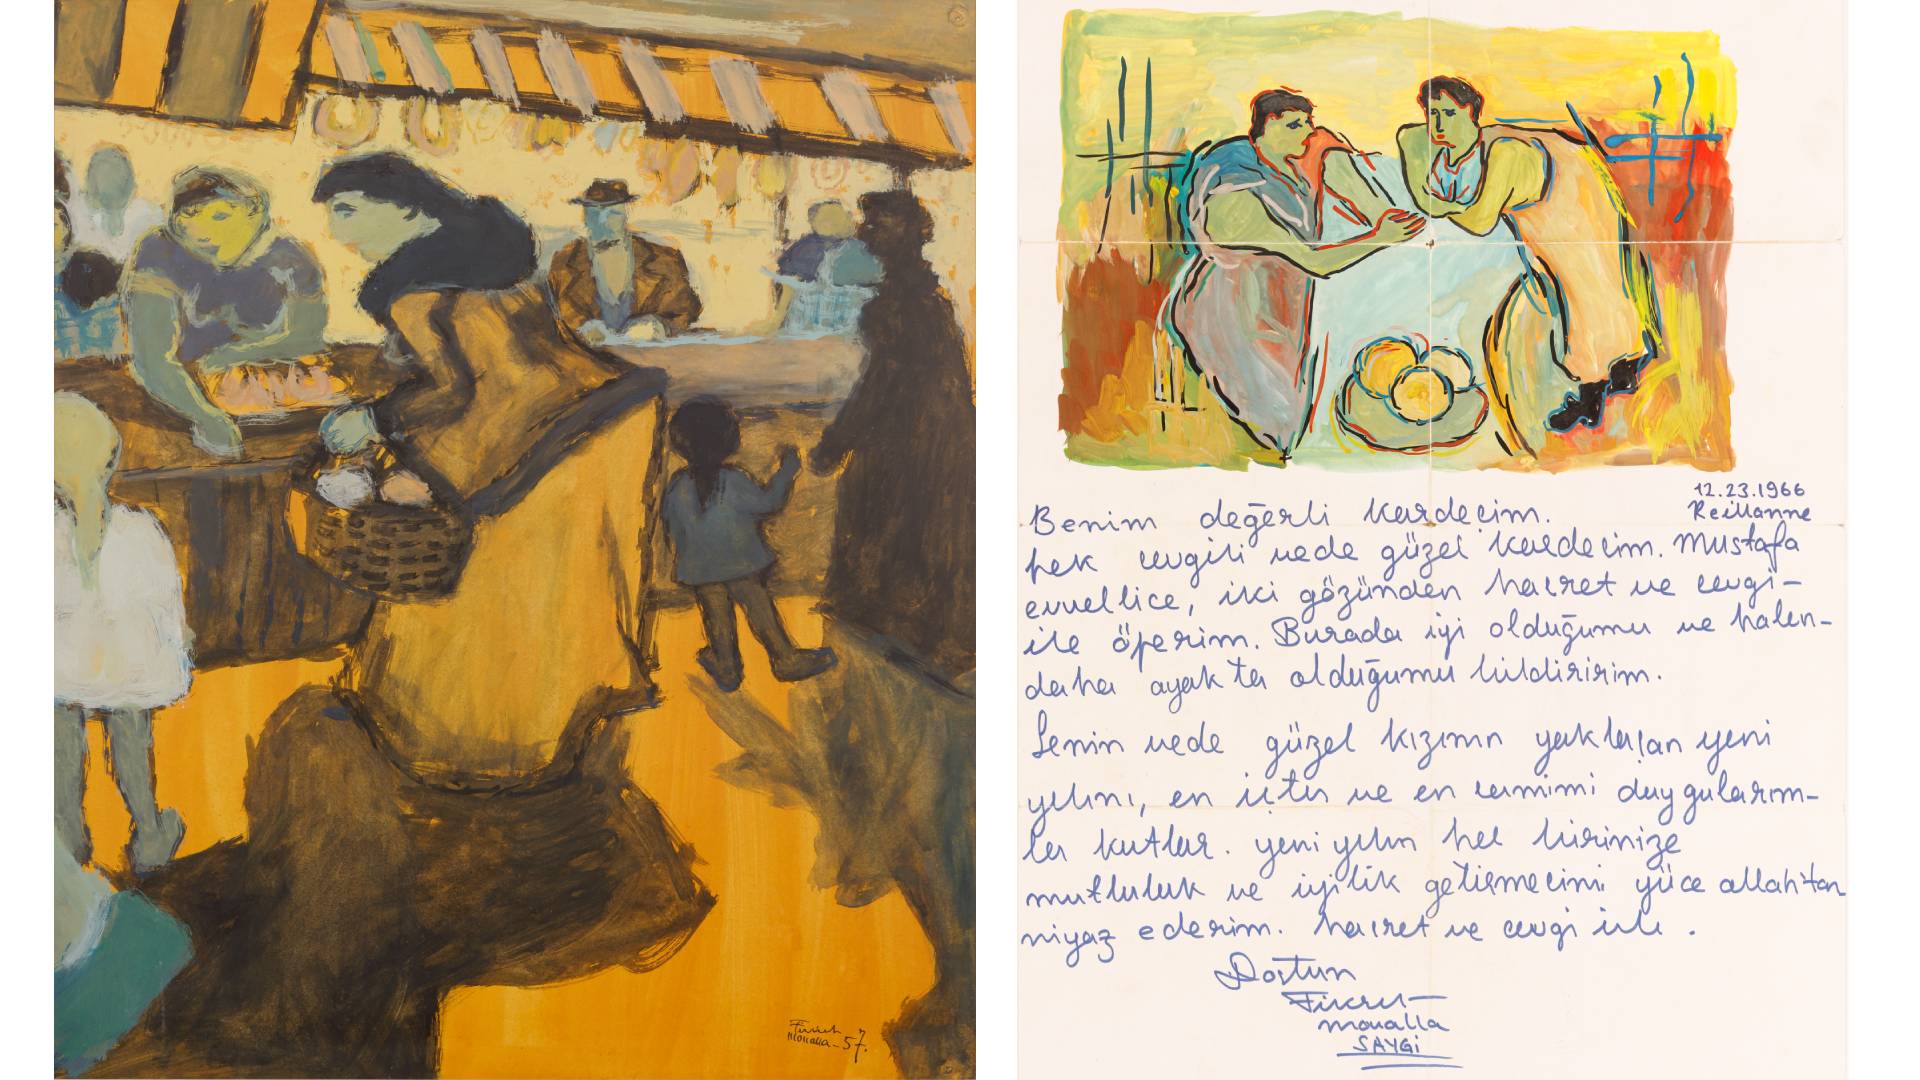 Fikret
Moualla - 57.
12.23.1966
Reillanne
Benim değerli kardeşim.
Pek sevgili vede güzel kardeşim. Mustafa
evvellice, iki gözünden hasret ve sevgi-
ile öperim. Burada iyi olduğumu ve halen-
daha ayakta olduğumu bildiririm.
Senin vede güzel kızımın yaklaşan yeni
yılını, en içten ve en samimi duygularım-
la kutlar. yeni yılın her birinize
mutluluk ve iyilik getirmesini yüce allah'tan
niyaz ederim. hasret ve sevgi ile.
Dostun
Fikret
Moualla
SAYGI